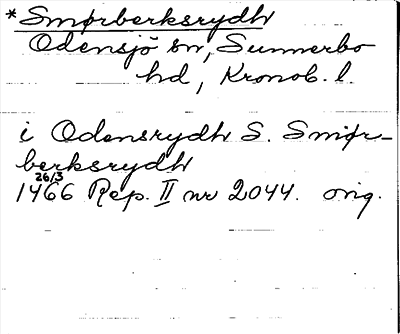 * Smørberksrydh
Odensjö sn, Sunnerbo
hd, Kronob. l.
i Odensrydh S. Smør-
berksrydh
26/3
1466 Rep. II nr 2044. orig.